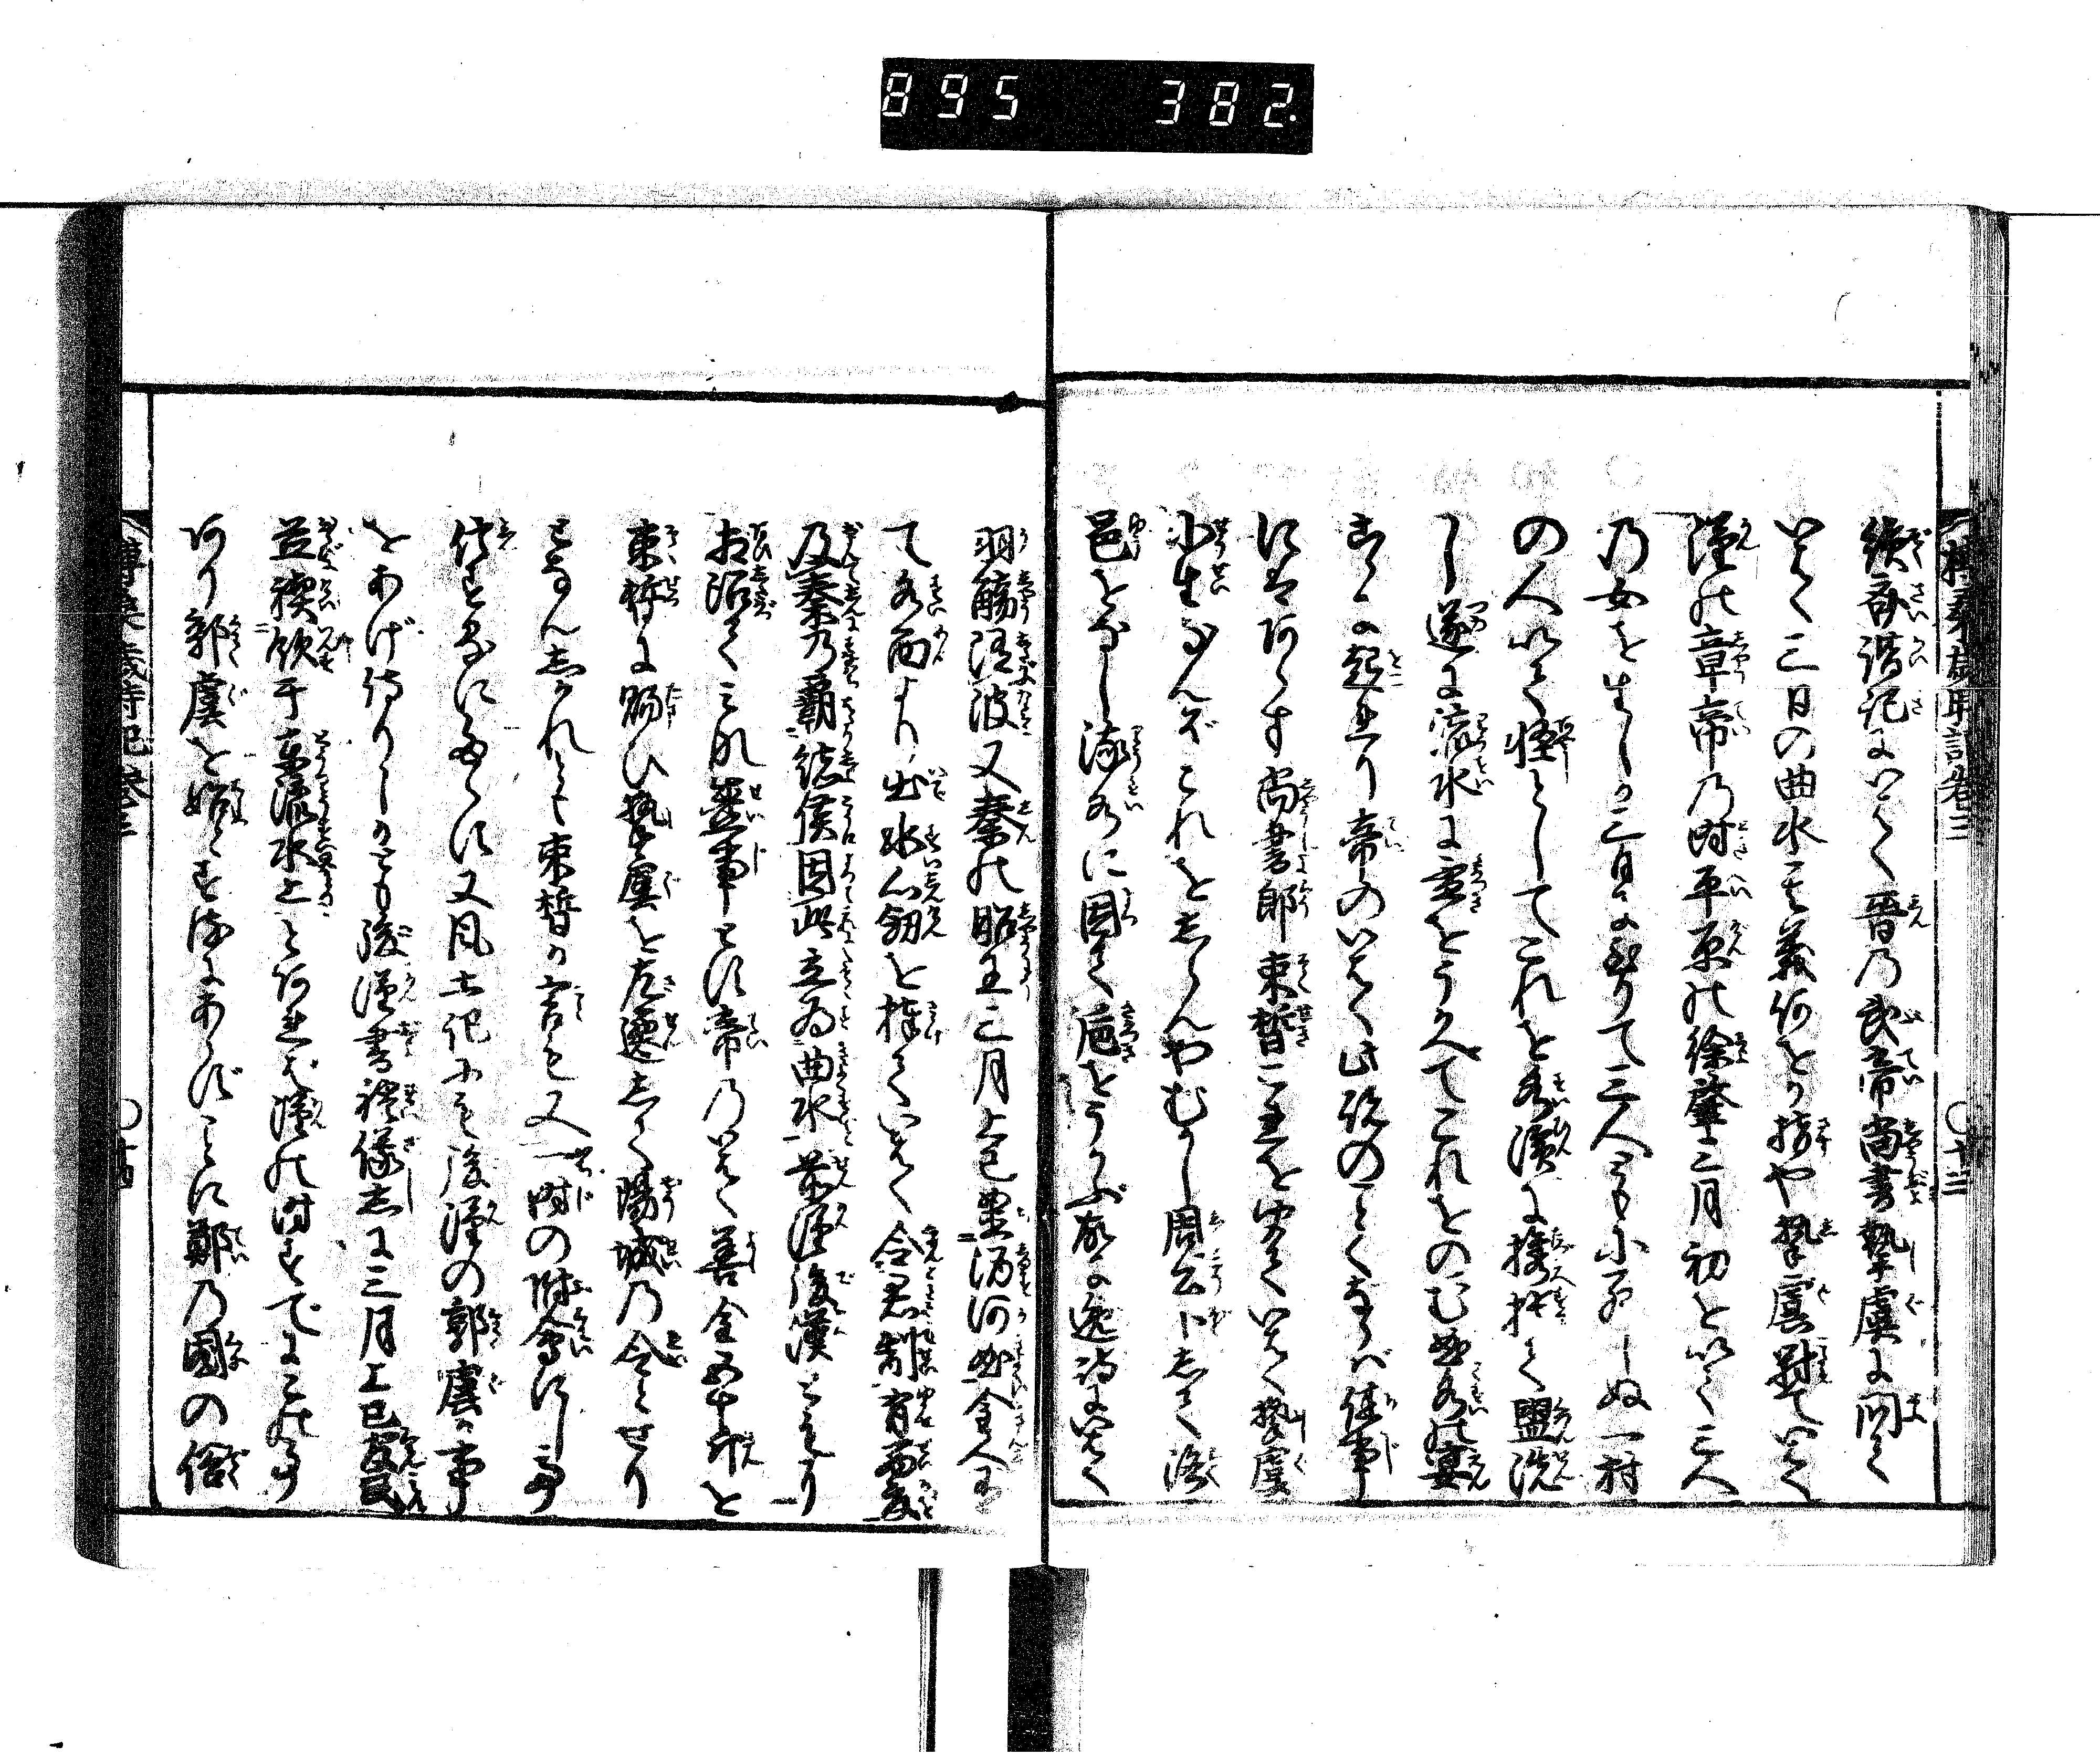 895 382.
續齊諧記にいはく晋の武帝尚書摯虞に問て
いはく三日の曲水其義何をか指や摯虞對ていはく
漢の章帝の時平原の徐肇三月初を以て三人
の女を生しか三日に至りて三人ともに死しぬ一村
の人以て怪としてこれを水濱に携於て盥洗
し遂に流水に盃をうかへてこれをのむ曲水の宴
こゝに起れり帝のいはく此説のことくならば佳事
にはあらす尚書郎束晳こゝを以ていはく摯虞
小生なんぞこれをしらんやむかし周公卜して洛
邑をなし流水に因て巵をうかぶ故に逸詩にいはく
羽觴隨波又秦の昭王三月上巳置酒河曲金人有
て水面より出水心劔を捧ていはく令君制有西夏
及秦乃覇諸侯因此立為曲水前漢後漢ともに
相沿てこれ盛事とす帝のいはく善金五十斤を
束晳に賜ひ摯虞を左遷して陽城の令とせり
となんしかれとも束晳の言も又一時の附會にして
信するにたらす又風土記にも後漢の郭虞か事
をあげ侍りしかとも後漢書禮儀志に三月上巳官民
並禊飲于東流水上とあれば漢の時すでにこの事
あり郭虞を始とするにあらずことに鄭の國の俗